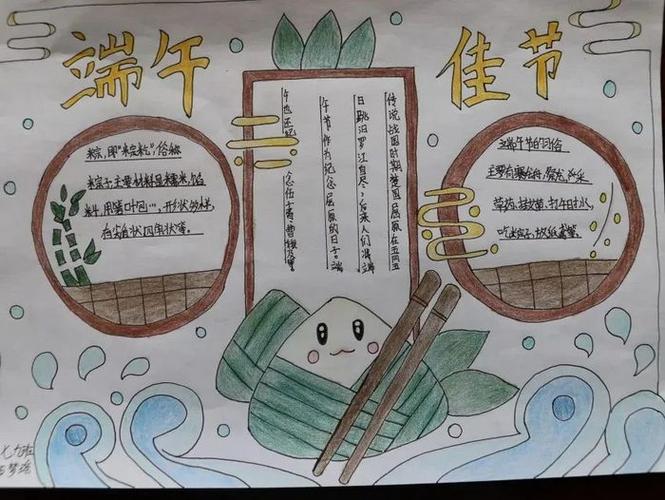 端午 佳节
粽,即"粽籺"俗称
粽子,主要材料是糯米、馅
料,用箬叶包…,形状多样,
有尖角状、四角状等。
传说战国时期楚国屈原在五月五
日跳汨罗江自尽,后来人们将端
午节作为纪念屈原的日子。端
午也还纪念伍子胥、曹娥及等
端午节的习俗
主要有赛龙舟,采
草药,挂艾草,打午日水,
吃粽子,放纸鸢等。
七九班
梦瑶